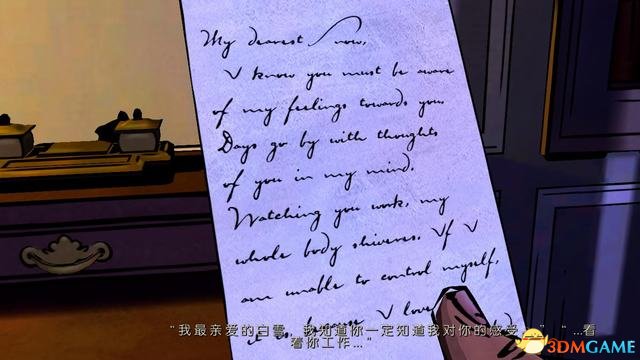 My dearest Snow,
I know you must be aware
of my feelings towards you.
Days go by with thoughts
of you in my mind.
Watching you work, my
whole body shivers. If I
am unable to control myself,
it is because I love
“我最亲爱的白雪，我知道你一定知道我对你的感受…” “…看
着你工作…”
3DMGAME